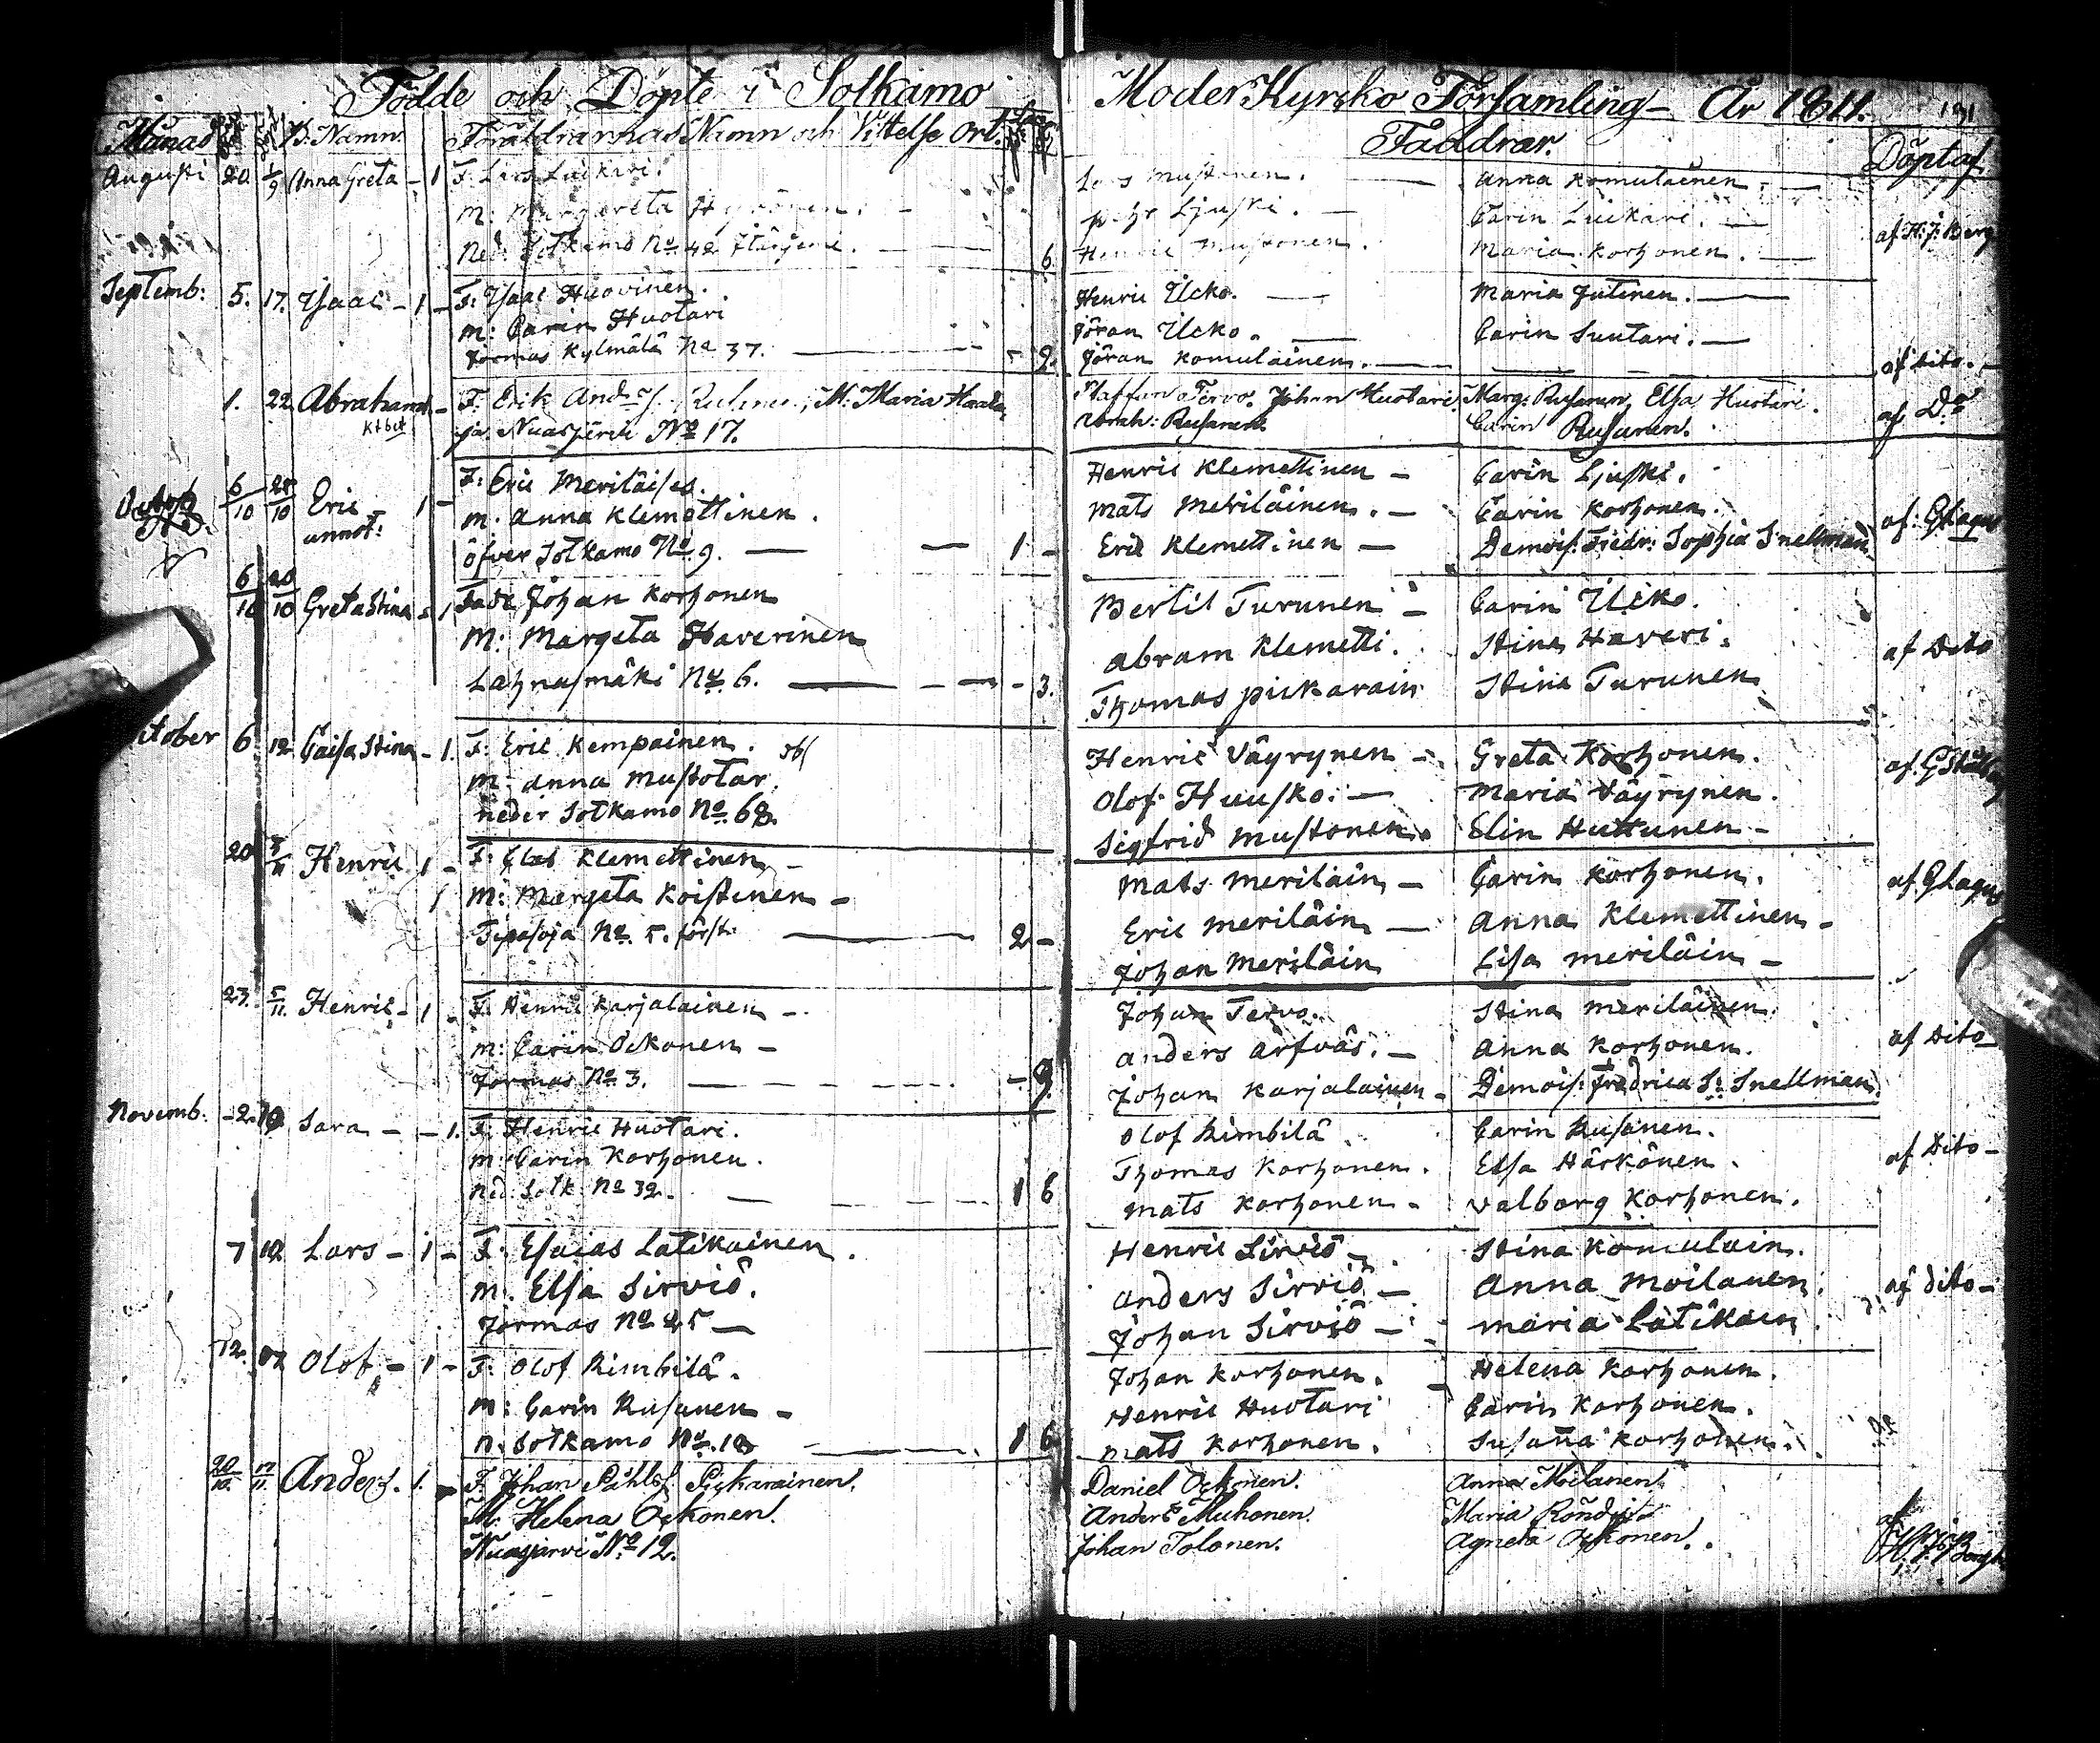 Födde och Döpte i Sotkamo Moder Kyrko Församling År 1811. 191
Månad B. Namn. Föräldrarnas Namn och Vistelse Ort. Faddrar. Döpt af
Augusti 20 1/9 Anna Greta - 1 F: Lars Luikari. Lars Mustonen. Anna Komulainen.
M: Margareta Hyvönen. pehr Ljuski. Carin Luikari. af H. J. Berg
Ned: Sotkamo No 42 6 Henric Mustonen. Maria Korhonen.
Septemb: 5. 17. Isaac - 1 - F: Isaac Huovinen. Henric Ucko. Maria Jutinen.
M: Carin Huotari Jöran Ucko. Carin Suutari.
Jormas Kylmälä No 37. - 2. Jöran Komulainen. af dito.
1. 22 Abraham - F: Erik And: s. Rusanen, M: Maria Staffan Tervo. Johan Huotari. Marg: Rusanen, Elsa Huotari. af Do
Nuasjärvi No 17. Abrah: Rusanen. Carin Rusanen.
Octob: 6/10 20/10 Eric 1 - F: Eric Meriläises. Henric Klemettinen - Carin Ljuski.
annot: M: Anna Klemettinen. Mats Meriläinen. - Carin Korhonen. af: G Lagus
öfver Sotkamo No 9. 1 - Eric Klemettinen - Demois: Fredr: Sophia Snellman
6/10 20/10 Greta Stina - 1 Fadr Johan Korhonen Bertil Turunen - Carin Ucko.
M: Margeta Haverinen Abram Klemetti. Stina Haveri. af Dito
Lahnasmäki No 6. - 3. Thomas pickarain Stina Turunen
October 6 12 Caisa Stina - 1. F: Eric Kempainen. Henric Väyrynen - Greta Korhonen.
M: Anna Mustotar. Olof Huusko. - Maria Väyrynen.
neder Sotkamo No 68. Sigfrid Mustonen. Elin Huttunen -
20 5/11 Henric 1 - F: Clas Klemettinen - Mats Meriläin - Carin Korhonen. af G Lagus
M: Margeta Koistinen - Eric Meriläin - Anna Klemettinen -
Tipasoja No 5. 2 - Johan Meriläin Lisa Meriläin -
23. 5/11 Henric - 1 - F: Henric Karjalainen - Johan Tervo. Stina Meriläinen.
M: Carin Ockonen - Anders Arfväs. - Anna Korhonen. af Dito -
Jormas No 3. - 9. Johan Karjalainen - Demois: Fredrica S: Snellman.
Novemb: - 2. 10 Sara - - 1. F: Henric Huotari. Olof Rimbilä. Carin Rusanen.
M: Carin Korhonen. Thomas Korhonen. Elsa Härkönen. af Dito -
Ned: Sotk: No 32. 1 6 Mats Korhonen - Valborg Korhonen.
7 10 Lars - 1 - F: Esaias Latikainen. Henric Sirviö - Stina Komulain.
M: Elsa Sirviö. Anders Sirviö - Anna Moilanen. af dito -
Jormas No 25 - Johan Sirviö - Maria Latikain
12. 17 Olof - 1 - F: Olof Rimbilä. Johan Korhonen. Helena Korhonen.
M: Carin Rusanen - Henric Huotari Carin Korhonen.
N. Sotkamo No 18 1 6 Mats Korhonen. Susanna Korhonen.
20/10. 17/11. Anders. 1. F: Johan Påhls: Pickarainen. Daniel Ockonen. Anna Moilanen.
M: Helena Ockonen. Anders Muhonen. Maria
Nuasjärvi No 12. Johan Tolonen. Agneta Ockonen. af H. J. Bergh